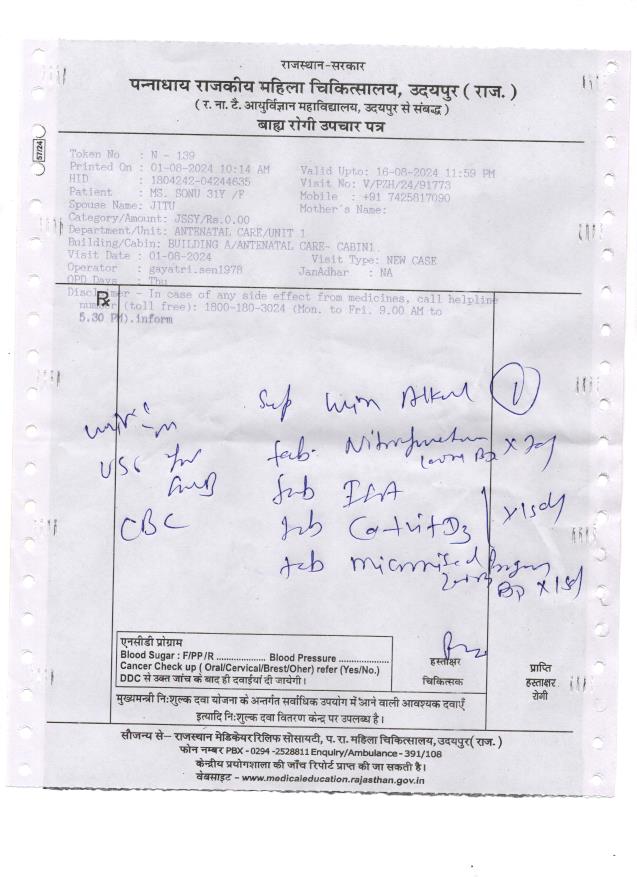 राजस्थान-सरकार
पन्नाधाय राजकीय महिला चिकित्सालय, उदयपुर ( राज. )
( र. ना. टै. आयुर्विज्ञान महाविद्यालय, उदयपुर से संबद्ध )
बाह्य रोगी उपचार पत्र
57/24
Token No : N - 139
Printed On : 01-08-2024 10:14 AM Valid Upto: 16-08-2024 11:59 PM
HID : 1804242-04244635 Visit No: V/PZH/24/91773
Patient : MS. SONU 31Y /F Mobile : +91 7425817090
Spouse Name: JITU Mother's Name:
Category/Amount: JSSY/Rs.0.00
Department/Unit: ANTENATAL CARE/UNIT 1
Building/Cabin: BUILDING A/ANTENATAL CARE- CABIN1.
Visit Date : 01-08-2024 Visit Type: NEW CASE
Operator : gayatri.sen1978 JanAdhar : NA
OPD Days : Thu
Disclaimer - In case of any side effect from medicines, call helpline
number (toll free): 1800-180-3024 (Mon. to Fri. 9.00 AM to
5.30 PM).inform
Rx
Syp Alkal 1
tab. Nitrofurantoin
USG for
tab IFA
CBC
tab D3
tab micronised
एनसीडी प्रोग्राम
Blood Sugar : F/PP/R .................. Blood Pressure ..................
Cancer Check up ( Oral/Cervical/Brest/Oher) refer (Yes/No.)
DDC से उक्त जांच के बाद ही दवाईयां दी जायेगी।
हस्ताक्षर
चिकित्सक
प्राप्ति
हस्ताक्षर
रोगी
मुख्यमंत्री नि:शुल्क दवा योजना के अन्तर्गत सर्वाधिक उपयोग में आने वाली आवश्यक दवाएँ
इत्यादि नि:शुल्क दवा वितरण केन्द्र पर उपलब्ध है।
सौजन्य से– राजस्थान मेडिकेयर रिलिफ सोसायटी, प. रा. महिला चिकित्सालय, उदयपुर( राज. )
फोन नम्बर PBX - 0294 -2528811 Enquiry/Ambulance - 391/108
केन्द्रीय प्रयोगशाला की जाँच रिपोर्ट प्राप्त की जा सकती है।
वेबसाइट – www.medicaleducation.rajasthan.gov.in